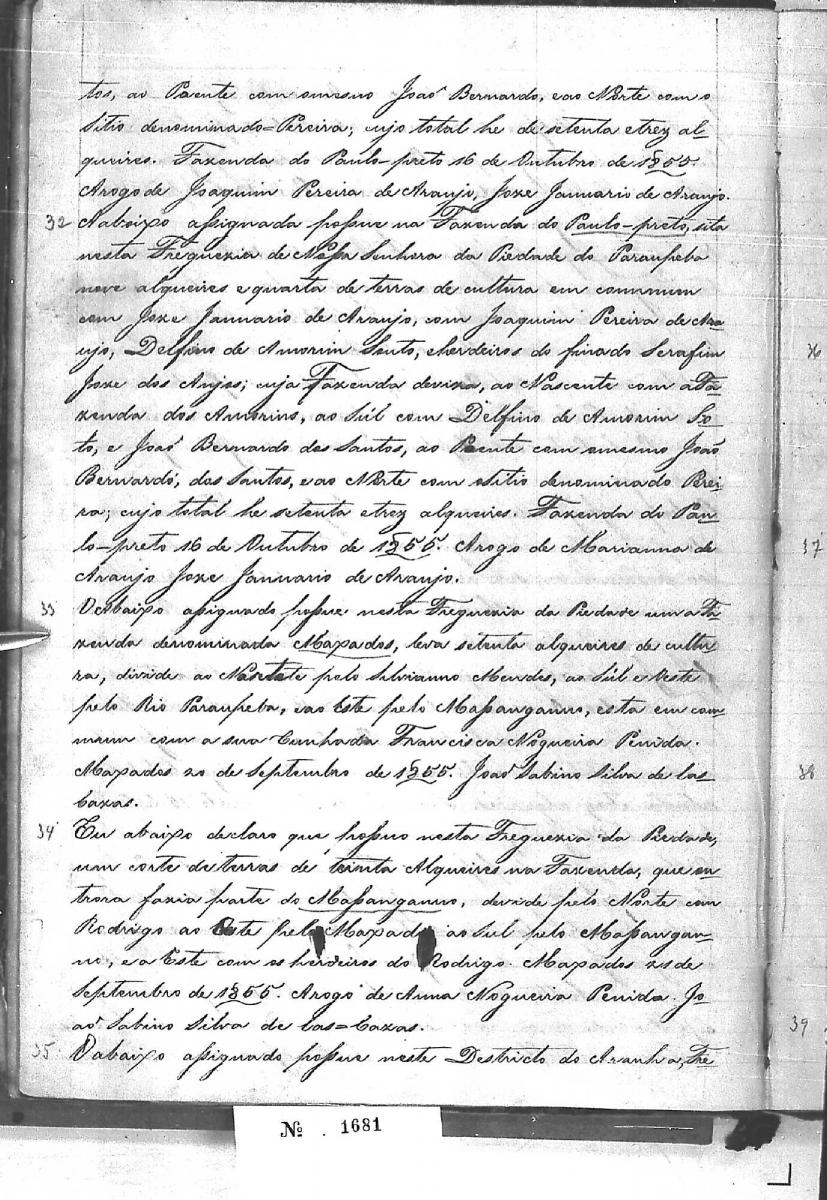 tos, ao Poente com omesmo João Bernardo, e ao Norte com o
Sitio denominado=Pereira; cujo total he de setenta etrez al-
queires. Fazenda do Paulo-preto 16 de Outubro de 1855
Arogo de Joaquim Pereira de Araujo, Joze Januario de Araujo.
32 Aabaixo assignada possue na Fazenda do Paulo-preto, sita
nesta Freguezia de Nossa Senhora da Piedade do Paraupeba
nove alqueires e quarta de terras de cultura em commum
com Joze Januario de Araujo, com Joaquim Pereira de Ara-
ujo, Delfino de Amorim Souto, e herdeiros do finado Serafim
Joze dos Anjos; cuja Fazenda deviza, ao Nascente com a Fa-
zenda dos Amorins, ao Sul com Delfino de Amorim So-
to, e João Bernardo dos Santos, ao Poente com omesmo João
Bernardo, dos Santos, e ao Norte com ositio denominado Perei-
ra; cujo total he setenta etrez alqueires. Fazenda do Pau-
lo-preto 16 de Outubro de 1855. Arogo de Marianna de
Araujo Joze Januario de Araujo.
33 Oabaixo assignado possue nesta Freguezia da Piedade uma Fa-
zenda denominada Maxados, leva setenta alqueires de cultu-
ra, divide ao Norte pelo Silvianno Mendes, ao Sul e Oeste
pelo Rio Paraupeba, e ao Este pelo Massanganno, esta em com-
mum com a sua Cunhada Francisca Nogueira Penida.
Maxados 20 de Septembro de 1855. João Sabino Silva de las
Cazas.
34 Eu abaixo declaro que possuo nesta Freguezia da Piedade,
um corte de terras de trinta Alqueires na Fazenda, que ou-
trora fazia parte do Massanganno, devide pelo Norte com
Rodrigo ao Oeste pelo Maxado ao Sul pelo Massangan-
no, e a Este com os herdeiros do Rodrigo. Maxados 21 de
Septembro de 1855. Arogo de Anna Nogueira Penida. Jo-
ão Sabino Silva de las=Cazas.
35 Oabaixo assignado possue neste Destricto do Aranha, Fre
36
37
38
39
Nº 1681